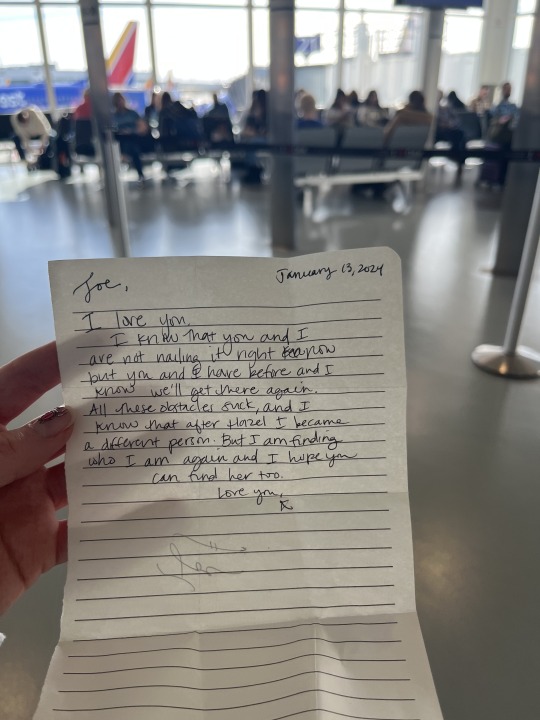 January 13, 2024
Joe,
I love you.
I know that you and I
are not nailing it right now
but you and I have before and I
know we'll get there again.
All these obstacles suck, and I
know that after Hazel I became
a different person. But I am finding
who I am again and I hope you
can find her too.
Love you,
K